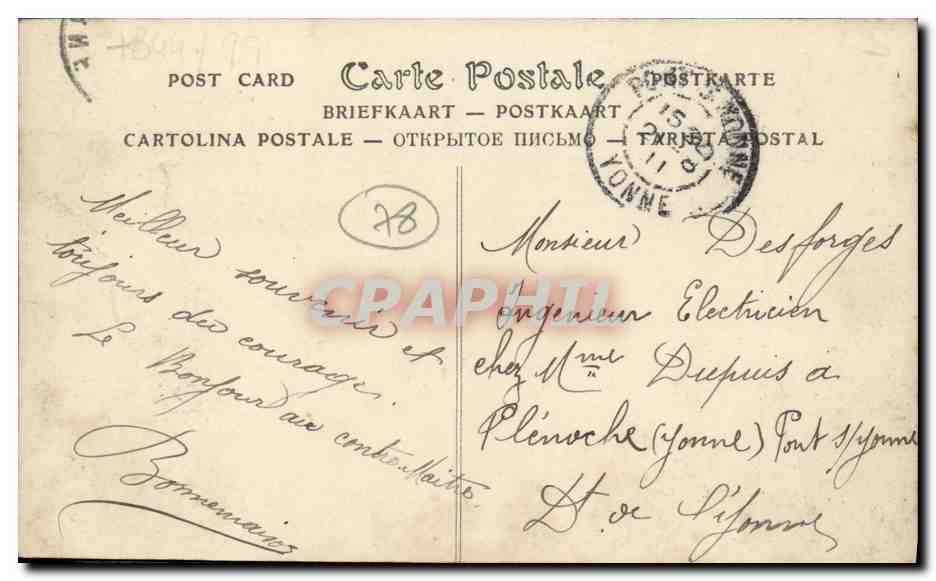 YNE
7844/99
POST CARD Carte Postale POSTKARTE
BRIEFKAART — POSTKAART
CARTOLINA POSTALE — ОТКРЫТОЕ ПИСЬМО — TARJETA POSTAL
PONT S. YONNE
15
11 8
YONNE
78
Meilleur souvenir et
toujours du courage.
Le Bonjour au contre Maitre
Bonnemain
Monsieur Desforges
Ingenieur Electricien
chez Mme Dupuis a
Plénoche (Yonne) Pont s/yonne
Dt. de l'Yonne
CPAPHIL